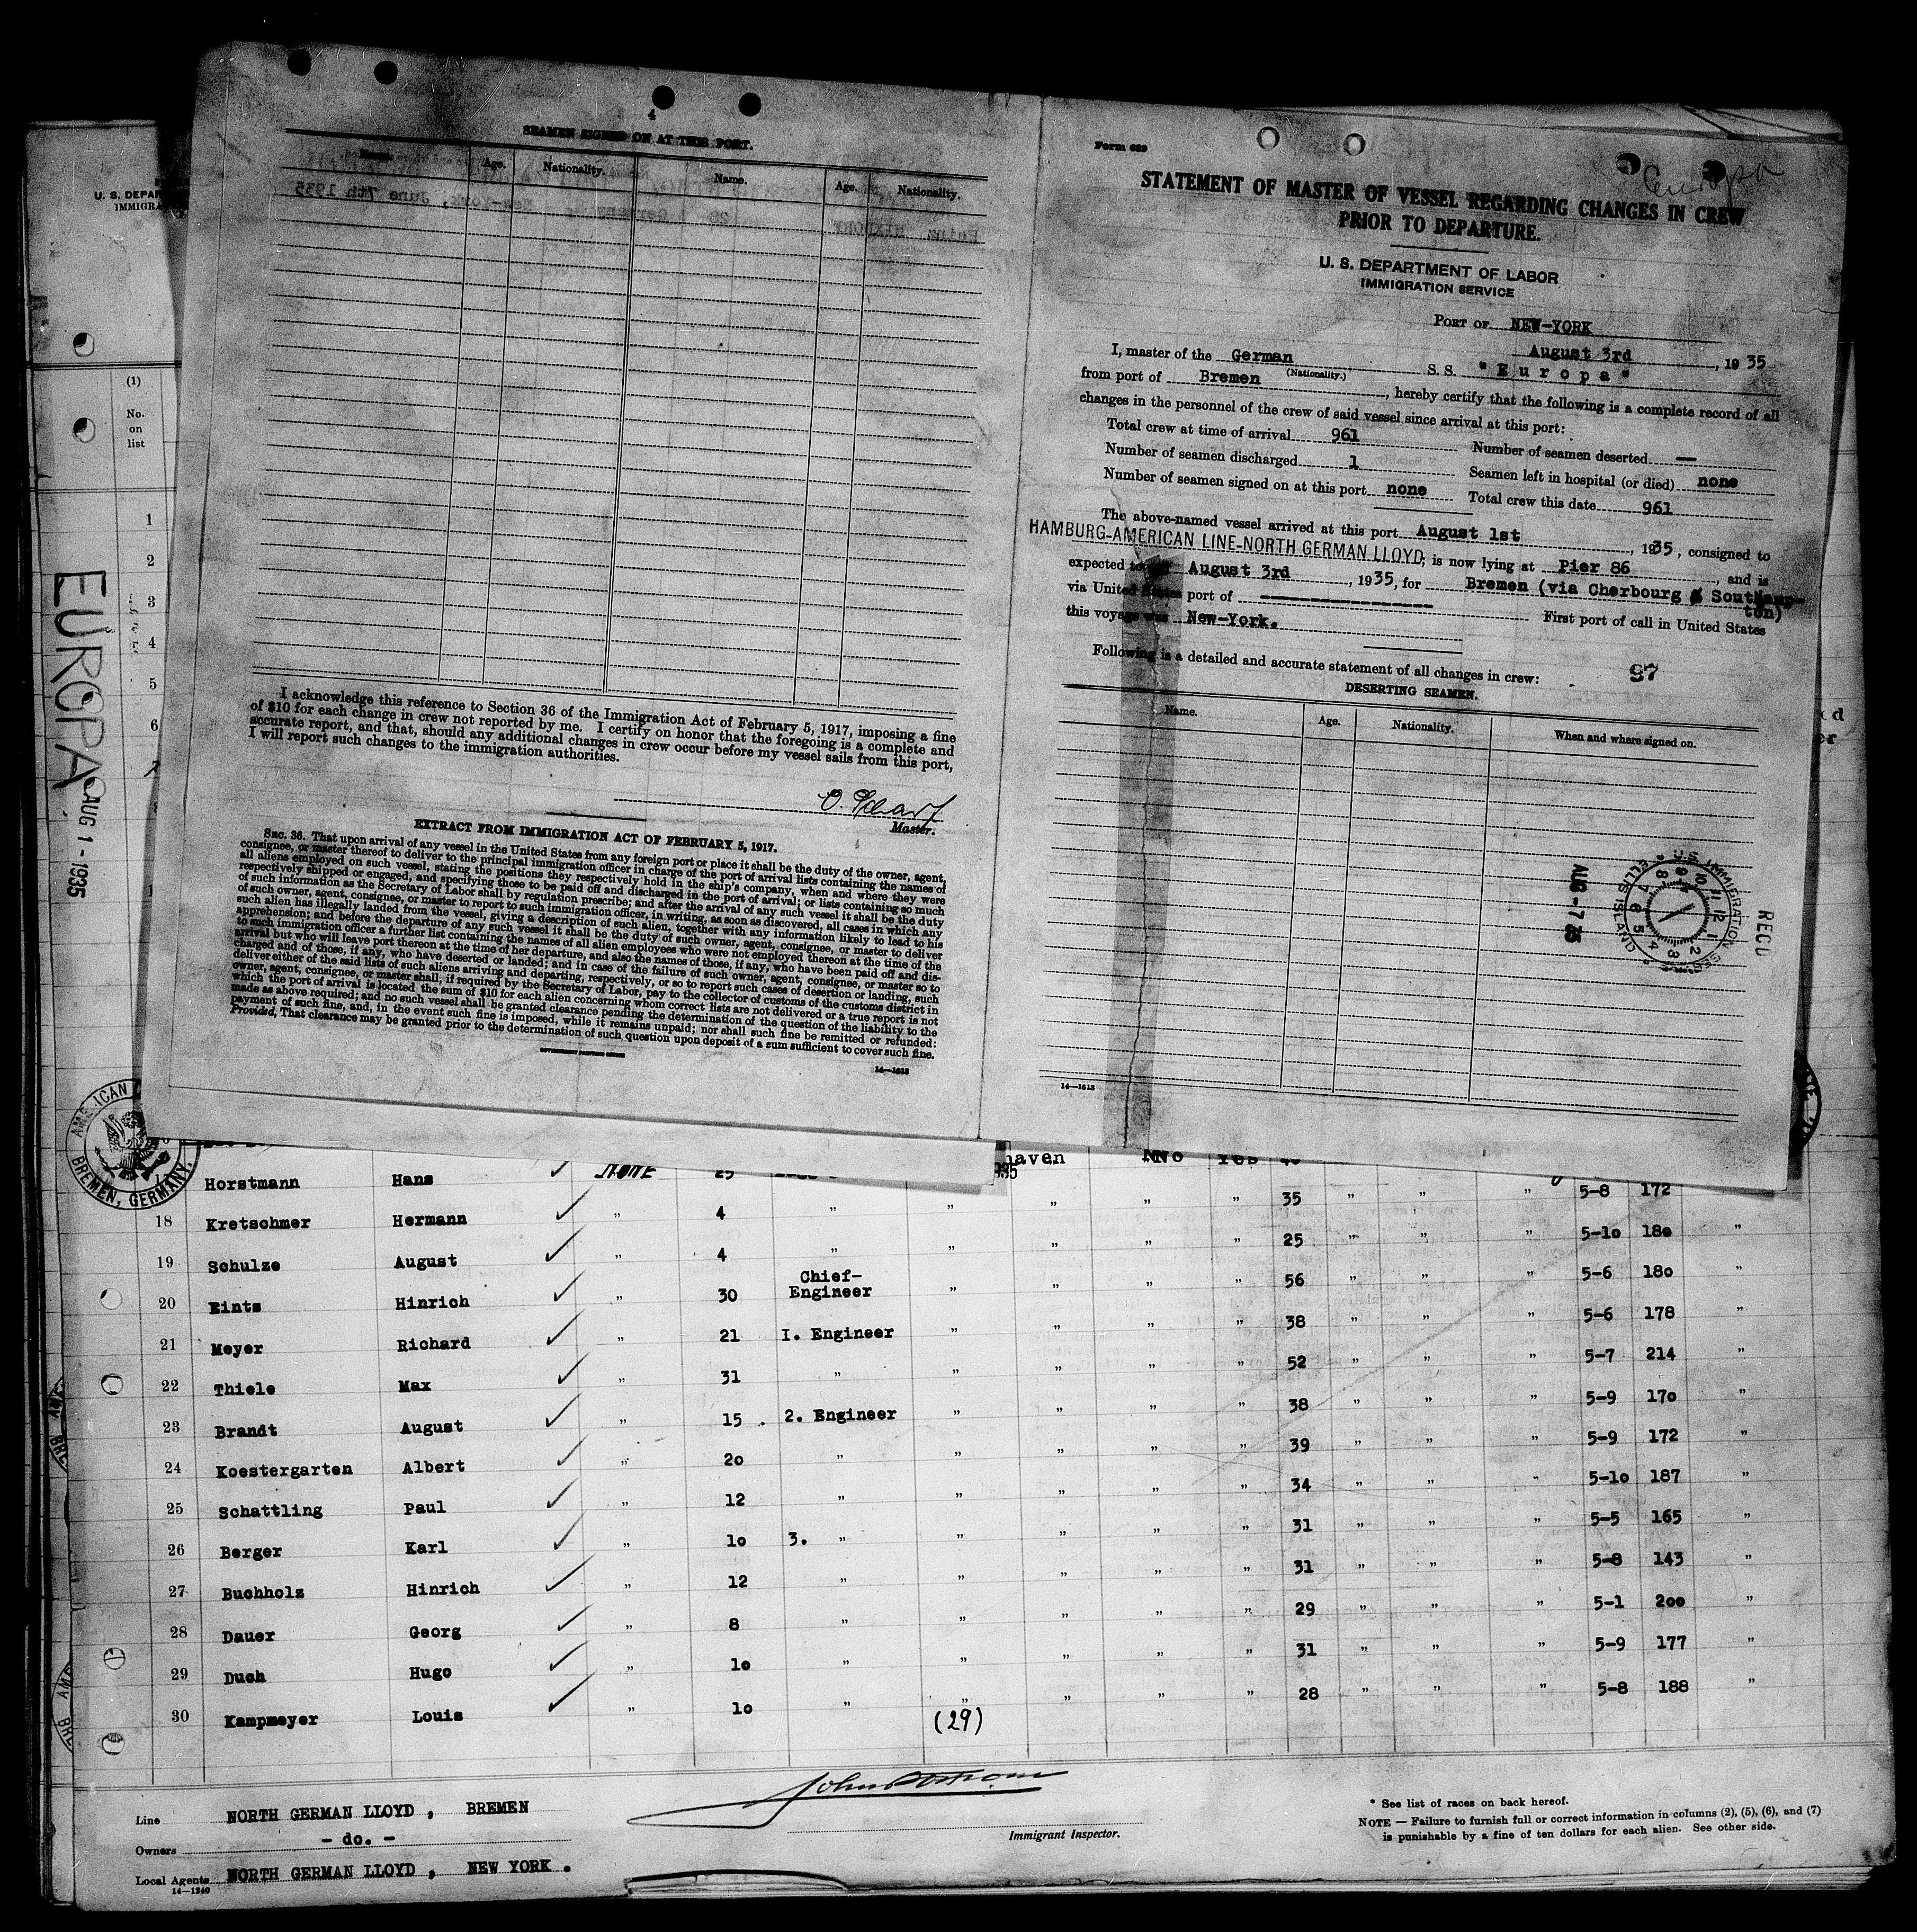 4
SEAMEN SIGNED ON AT THIS PORT.
Name. Age. Nationality. Name. Age. Nationality.
New-York, June 7th 1935
I acknowledge this reference to Section 36 of the Immigration Act of February 5, 1917, imposing a fine
of $10 for each change in crew not reported by me. I certify on honor that the foregoing is a complete and
accurate report, and that, should any additional changes in crew occur before my vessel sails from this port,
I will report such changes to the immigration authorities.
O. Scharf
Master.
EXTRACT FROM IMMIGRATION ACT OF FEBRUARY 5, 1917.
SEC. 36. That upon arrival of any vessel in the United States from any foreign port or place it shall be the duty of the owner, agent,
consignee, or master thereof to deliver to the principal immigration officer in charge of the port of arrival lists containing the names of
all aliens employed on such vessel, stating the positions they respectively hold in the ship's company, when and where they were
respectively shipped or engaged, and specifying those to be paid off and discharged in the port of arrival; or lists containing so much
of such information as the Secretary of Labor shall by regulation prescribe; and after the arrival of any such vessel it shall be the duty
of such owner, agent, consignee, or master to report to such immigration officer, in writing, as soon as discovered, all cases in which any
such alien has illegally landed from the vessel, giving a description of such alien, together with any information likely to lead to his
apprehension; and before the departure of any such vessel it shall be the duty of such owner, agent, consignee, or master to deliver
to such immigration officer a further list containing the names of all alien employees who were not employed thereon at the time of the
arrival but who will leave port thereon at the time of her departure, and also the names of those, if any, who have been paid off and dis-
charged and of those, if any, who have deserted or landed; and in case of the failure of such owner, agent, consignee, or master so to
deliver either of the said lists of such aliens arriving and departing, respectively, or so to report such cases of desertion or landing, such
owner, agent, consignee, or master shall, if required by the Secretary of Labor, pay to the collector of customs of the customs district in
which the port of arrival is located the sum of $10 for each alien concerning whom correct lists are not delivered or a true report is not
made as above required; and no such vessel shall be granted clearance pending the determination of the question of the liability to the
payment of such fine, and, in the event such fine is imposed, while it remains unpaid; nor shall such fine be remitted or refunded:
Provided, That clearance may be granted prior to the determination of such question upon deposit of a sum sufficient to cover such fine.
GOVERNMENT PRINTING OFFICE
14—1613
Form 689
Europa
STATEMENT OF MASTER OF VESSEL REGARDING CHANGES IN CREW
PRIOR TO DEPARTURE.
U. S. DEPARTMENT OF LABOR
IMMIGRATION SERVICE
PORT OF NEW-YORK
August 3rd, 1935
I, master of the German S. S. "Europa"
(Nationality.)
from port of Bremen, hereby certify that the following is a complete record of all
changes in the personnel of the crew of said vessel since arrival at this port:
Total crew at time of arrival 961 Number of seamen deserted —
Number of seamen discharged 1 Seamen left in hospital (or died) none
Number of seamen signed on at this port none Total crew this date 961
The above-named vessel arrived at this port August 1st, 1935, consigned to
HAMBURG-AMERICAN LINE-NORTH GERMAN LLOYD; is now lying at Pier 86, and is
expected to August 3rd, 1935, for Bremen (via Cherbourg & Southamp-
ton)
via United States port of ---------------- First port of call in United States
this voyage was New-York.
Following is a detailed and accurate statement of all changes in crew: 97
DESERTING SEAMEN.
Name. Age. Nationality. When and where signed on.
RECD
U.S. IMMIGRATION SER.
ELLIS ISLAND
AUG -7 35
14—1613
U. S. DEPAR
IMMIGRA
(1)
No.
on
list
1
2
3
4
5
6
7
EUROPA
AUG 1 - 1935
AMERICAN
BREMEN, GERMANY.
haven No Yes
Horstmann Hans ✓ NONE 25
" 4 " " " " " 35 " " " 5-8 172
18 Kretschmer Hermann ✓ " 4 " " " " " 25 " " " 5-10 180 "
19 Schulze August ✓ " Chief-
20 Eints Hinrich ✓ " 30 Engineer " " " " 56 " " " 5-6 180 "
21 Meyer Richard ✓ " 21 I. Engineer " " " " 38 " " " 5-6 178 "
22 Thiele Max ✓ " 31 " " " " " 52 " " " 5-7 214 "
23 Brandt August ✓ " 15 2. Engineer " " " " 38 " " " 5-9 170 "
24 Koestergarten Albert ✓ " 20 " " " " " 39 " " " 5-9 172 "
25 Schattling Paul ✓ " 12 " " " " " 34 " " " 5-10 187 "
26 Berger Karl ✓ " 10 3. " " " " " 31 " " " 5-5 165 "
27 Buchholz Hinrich ✓ " 12 " " " " " 31 " " " 5-8 143 "
28 Dauer Georg ✓ " 8 " " " " " 29 " " " 5-1 200 "
29 Duch Hugo ✓ " 10 " " " " " 31 " " " 5-9 177 "
30 Kampmeyer Louis ✓ " 10 " " " " " 28 " " " 5-8 188 "
(29)
Line NORTH GERMAN LLOYD, BREMEN
Owners - do. -
Local Agents NORTH GERMAN LLOYD, NEW YORK.
14—1240
Immigrant Inspector.
* See list of races on back hereof.
NOTE — Failure to furnish full or correct information in columns (2), (5), (6), and (7)
is punishable by a fine of ten dollars for each alien. See other side.